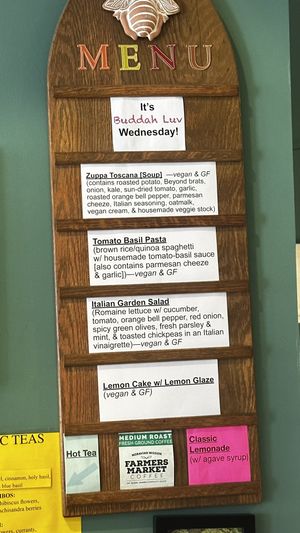 MENU
It's
Buddah Luv
Wednesday!
Zuppa Toscana [Soup] —vegan & GF
(contains roasted potato, Beyond brats,
onion, kale, sun-dried tomato, garlic,
roasted orange bell pepper, parmesan
cheeze, Italian seasoning, oatmalk,
vegan cream, & housemade veggie stock)
Tomato Basil Pasta
(brown rice/quinoa spaghetti
w/ housemade tomato-basil sauce
[also contains parmesan cheeze
& garlic])—vegan & GF
Italian Garden Salad
(Romaine lettuce w/ cucumber,
tomato, orange bell pepper, red onion,
spicy green olives, fresh parsley &
mint, & toasted chickpeas in an Italian
vinaigrette)—vegan & GF
Lemon Cake w/ Lemon Glaze
(vegan & GF)
Hot Tea
MEDIUM ROAST
FRESH GROUND COFFEE
FARMERS
MARKET
COFFEE
Classic
Lemonade
(w/ agave syrup)
C TEAS
cinnamon, holy basil,
blue basil
hibiscus flowers,
schisandra berries
flowers, currants,